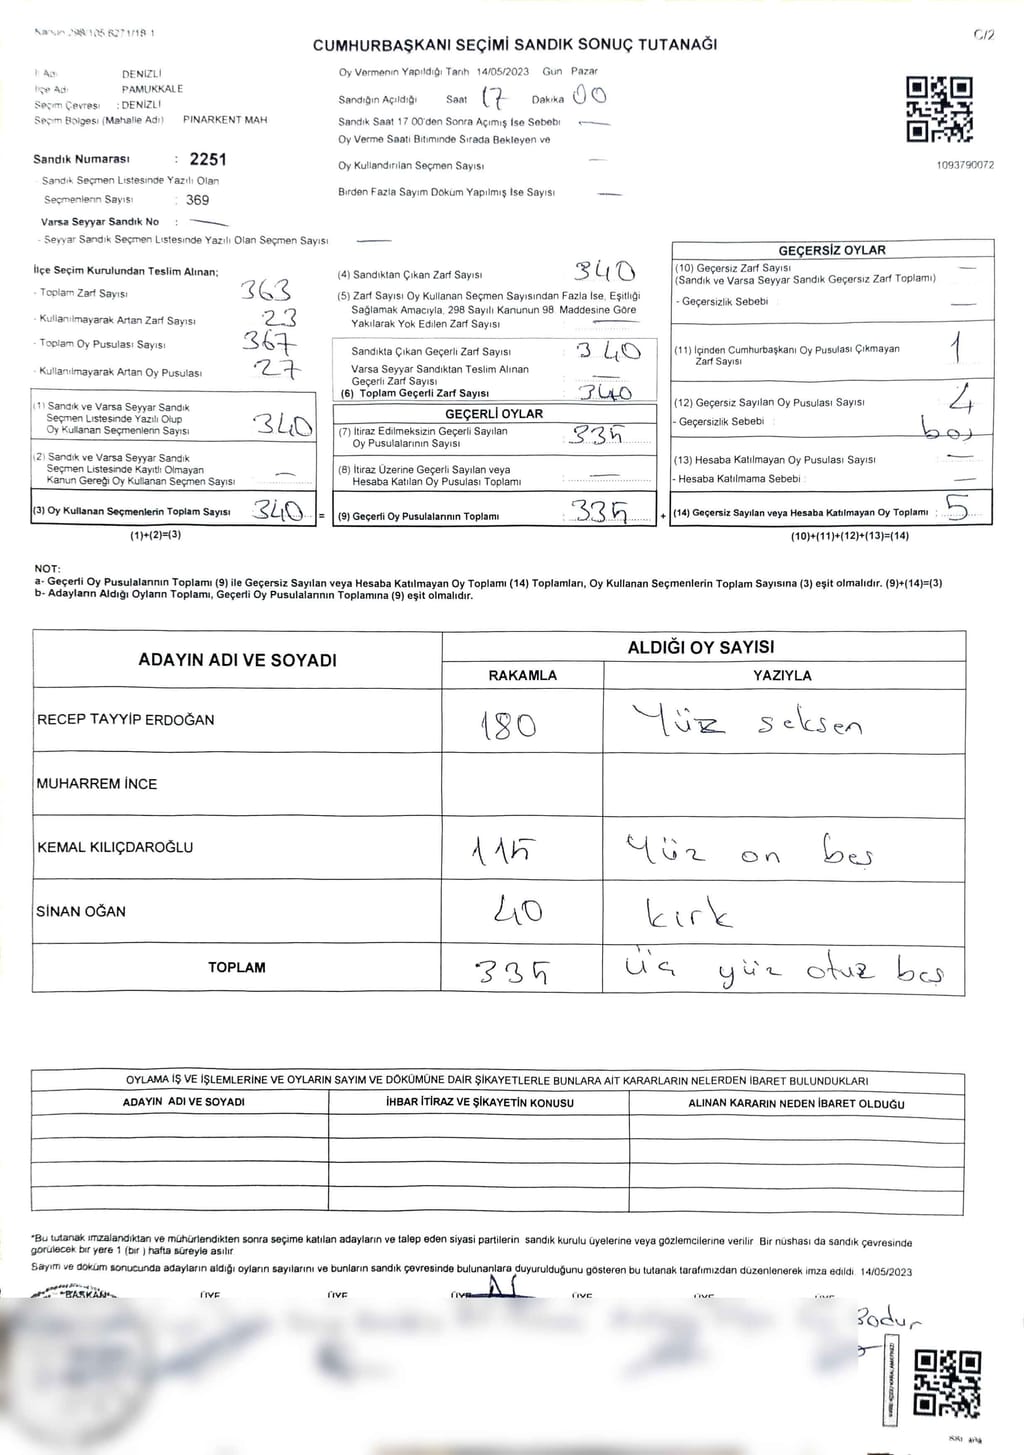 C/2
CUMHURBAŞKANI SEÇİMİ SANDIK SONUÇ TUTANAĞI
İl Adı DENİZLİ
İlçe Adı PAMUKKALE
Seçim Çevresi : DENİZLİ
Seçim Bölgesi (Mahalle Adı) PINARKENT MAH
Sandık Numarası : 2251
Sandık Seçmen Listesinde Yazılı Olan
Seçmenlerin Sayısı : 369
Varsa Seyyar Sandık No : —
- Seyyar Sandık Seçmen Listesinde Yazılı Olan Seçmen Sayısı —
Oy Vermenin Yapıldığı Tarih 14/05/2023 Gün Pazar
Sandığın Açıldığı Saat 17 Dakika 00
Sandık Saat 17 00'den Sonra Açılmış İse Sebebi —
Oy Verme Saati Bitiminde Sırada Bekleyen ve
Oy Kullandırılan Seçmen Sayısı —
Birden Fazla Sayım Döküm Yapılmış İse Sayısı —
1093790072
İlçe Seçim Kurulundan Teslim Alınan;
- Toplam Zarf Sayısı 363
- Kullanılmayarak Artan Zarf Sayısı 23
- Toplam Oy Pusulası Sayısı 367
- Kullanılmayarak Artan Oy Pusulası 27
(1) Sandık ve Varsa Seyyar Sandık
Seçmen Listesinde Yazılı Olup
Oy Kullanan Seçmenlerin Sayısı 340
(2) Sandık ve Varsa Seyyar Sandık
Seçmen Listesinde Kayıtlı Olmayan
Kanun Gereği Oy Kullanan Seçmen Sayısı —
(3) Oy Kullanan Seçmenlerin Toplam Sayısı 340 =
(1)+(2)=(3)
(4) Sandıktan Çıkan Zarf Sayısı 340
(5) Zarf Sayısı Oy Kullanan Seçmen Sayısından Fazla İse, Eşitliği
Sağlamak Amacıyla, 298 Sayılı Kanunun 98. Maddesine Göre
Yakılarak Yok Edilen Zarf Sayısı —
Sandıkta Çıkan Geçerli Zarf Sayısı : 340
Varsa Seyyar Sandıktan Teslim Alınan
Geçerli Zarf Sayısı : —
(6) Toplam Geçerli Zarf Sayısı : 340
GEÇERLİ OYLAR
(7) İtiraz Edilmeksizin Geçerli Sayılan
Oy Pusulalarının Sayısı : 335
(8) İtiraz Üzerine Geçerli Sayılan veya
Hesaba Katılan Oy Pusulası Toplamı : —
(9) Geçerli Oy Pusulalarının Toplamı : 335 +
GEÇERSİZ OYLAR
(10) Geçersiz Zarf Sayısı —
(Sandık ve Varsa Seyyar Sandık Geçersiz Zarf Toplamı)
- Geçersizlik Sebebi : —
(11) İçinden Cumhurbaşkanı Oy Pusulası Çıkmayan
Zarf Sayısı 1
(12) Geçersiz Sayılan Oy Pusulası Sayısı 4
- Geçersizlik Sebebi : boş
(13) Hesaba Katılmayan Oy Pusulası Sayısı —
- Hesaba Katılmama Sebebi : —
(14) Geçersiz Sayılan veya Hesaba Katılmayan Oy Toplamı : 5
(10)+(11)+(12)+(13)=(14)
NOT:
a- Geçerli Oy Pusulalarının Toplamı (9) ile Geçersiz Sayılan veya Hesaba Katılmayan Oy Toplamı (14) Toplamları, Oy Kullanan Seçmenlerin Toplam Sayısına (3) eşit olmalıdır. (9)+(14)=(3)
b- Adayların Aldığı Oyların Toplamı, Geçerli Oy Pusulalarının Toplamına (9) eşit olmalıdır.
ADAYIN ADI VE SOYADI ALDIĞI OY SAYISI
RAKAMLA YAZIYLA
RECEP TAYYİP ERDOĞAN 180 Yüz seksen
MUHARREM İNCE
KEMAL KILIÇDAROĞLU 115 Yüz on beş
SİNAN OĞAN 40 kırk
TOPLAM 335 üç yüz otuz beş
OYLAMA İŞ VE İŞLEMLERİNE VE OYLARIN SAYIM VE DÖKÜMÜNE DAİR ŞİKAYETLERLE BUNLARA AİT KARARLARIN NELERDEN İBARET BULUNDUKLARI
ADAYIN ADI VE SOYADI İHBAR İTİRAZ VE ŞİKAYETİN KONUSU ALINAN KARARIN NEDEN İBARET OLDUĞU
*Bu tutanak imzalandıktan ve mühürlendikten sonra seçime katılan adayların ve talep eden siyasi partilerin sandık kurulu üyelerine veya gözlemcilerine verilir Bir nüshası da sandık çevresinde
görülecek bir yere 1 (bir ) hafta süreyle asılır
Sayım ve döküm sonucunda adayların aldığı oyların sayılarını ve bunların sandık çevresinde bulunanlara duyurulduğunu gösteren bu tutanak tarafımızdan düzenlenerek imza edildi. 14/05/2023
BAŞKAN ÜYE ÜYE ÜYE ÜYE ÜYE
Bodur